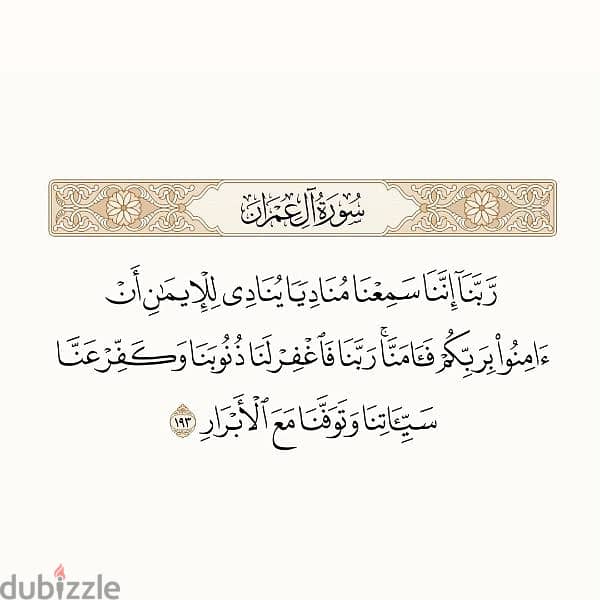 سُورَةُ آلِ عِمْرَان
رَّبَّنَآ إِنَّنَا سَمِعْنَا مُنَادِيًا يُنَادِى لِلْإِيمَٰنِ أَنْ
ءَامِنُوا۟ بِرَبِّكُمْ فَـَٔامَنَّا ۚ رَبَّنَا فَٱغْفِرْ لَنَا ذُنُوبَنَا وَكَفِّرْ عَنَّا
سَيِّـَٔاتِنَا وَتَوَفَّنَا مَعَ ٱلْأَبْرَارِ ١٩٣
dubizzle